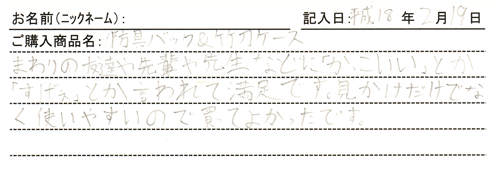 お名前(ニックネーム): 記入日:平成18年2月19日
ご購入商品名: 防具バック&竹刀ケース
まわりの友達や先輩や先生などに「かっこいい」とか
「すげぇ」とか言われて満足です。見かけだけでな
く使いやすいので買ってよかったです。